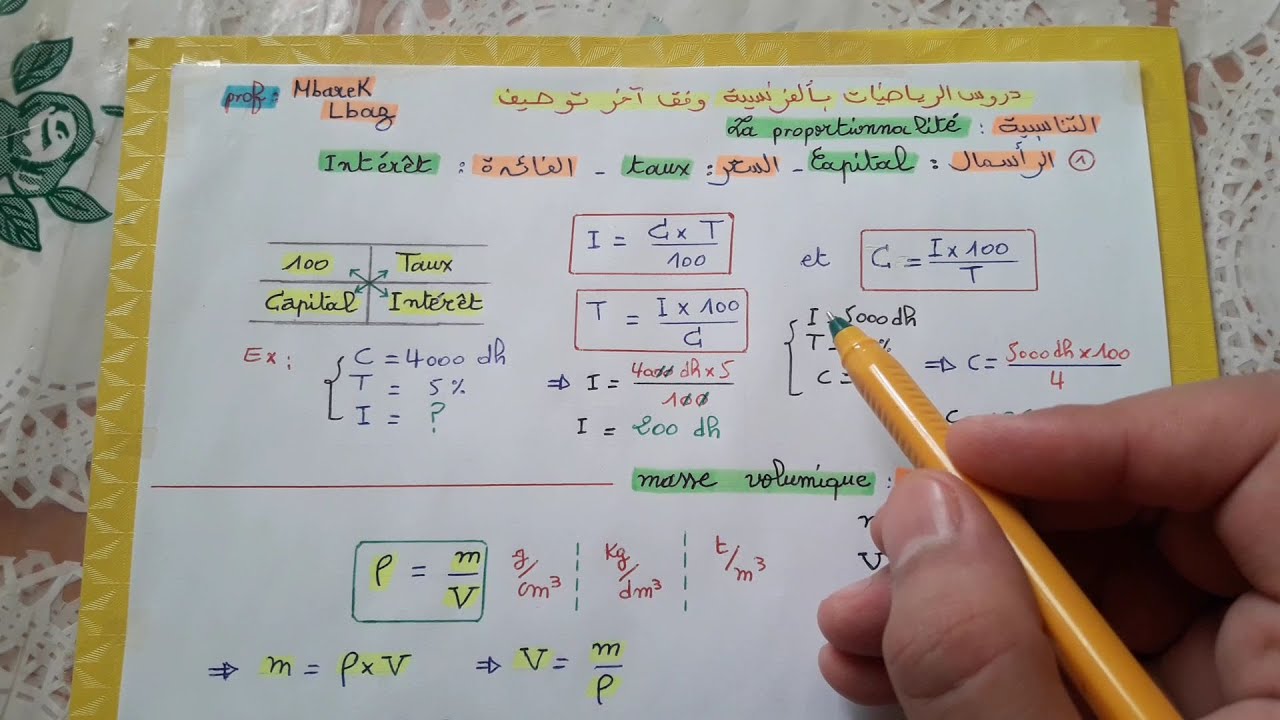 prof: Mbarek
Lbaz
دروس الرياضيات بالفرنسية وفق آخر توصيف
التناسبية : La proportionnalité
① الرأسمال : Capital - السعر : taux - الفائدة : Intérêt
100 Taux
Capital Intérêt
I = C x T / 100
et C = I x 100 / T
T = I x 100 / C
Ex: C = 4000 dh
T = 5 %
I = ?
⇒ I = 4000 dh x 5 / 100
I = 200 dh
I 5000 dh
T %
C =
⇒ C = 5000 dh x 100 / 4
masse volumique :
V
ρ = m / V g/cm³ Kg/dm³ t/m³
⇒ m = ρ x V ⇒ V = m / ρ